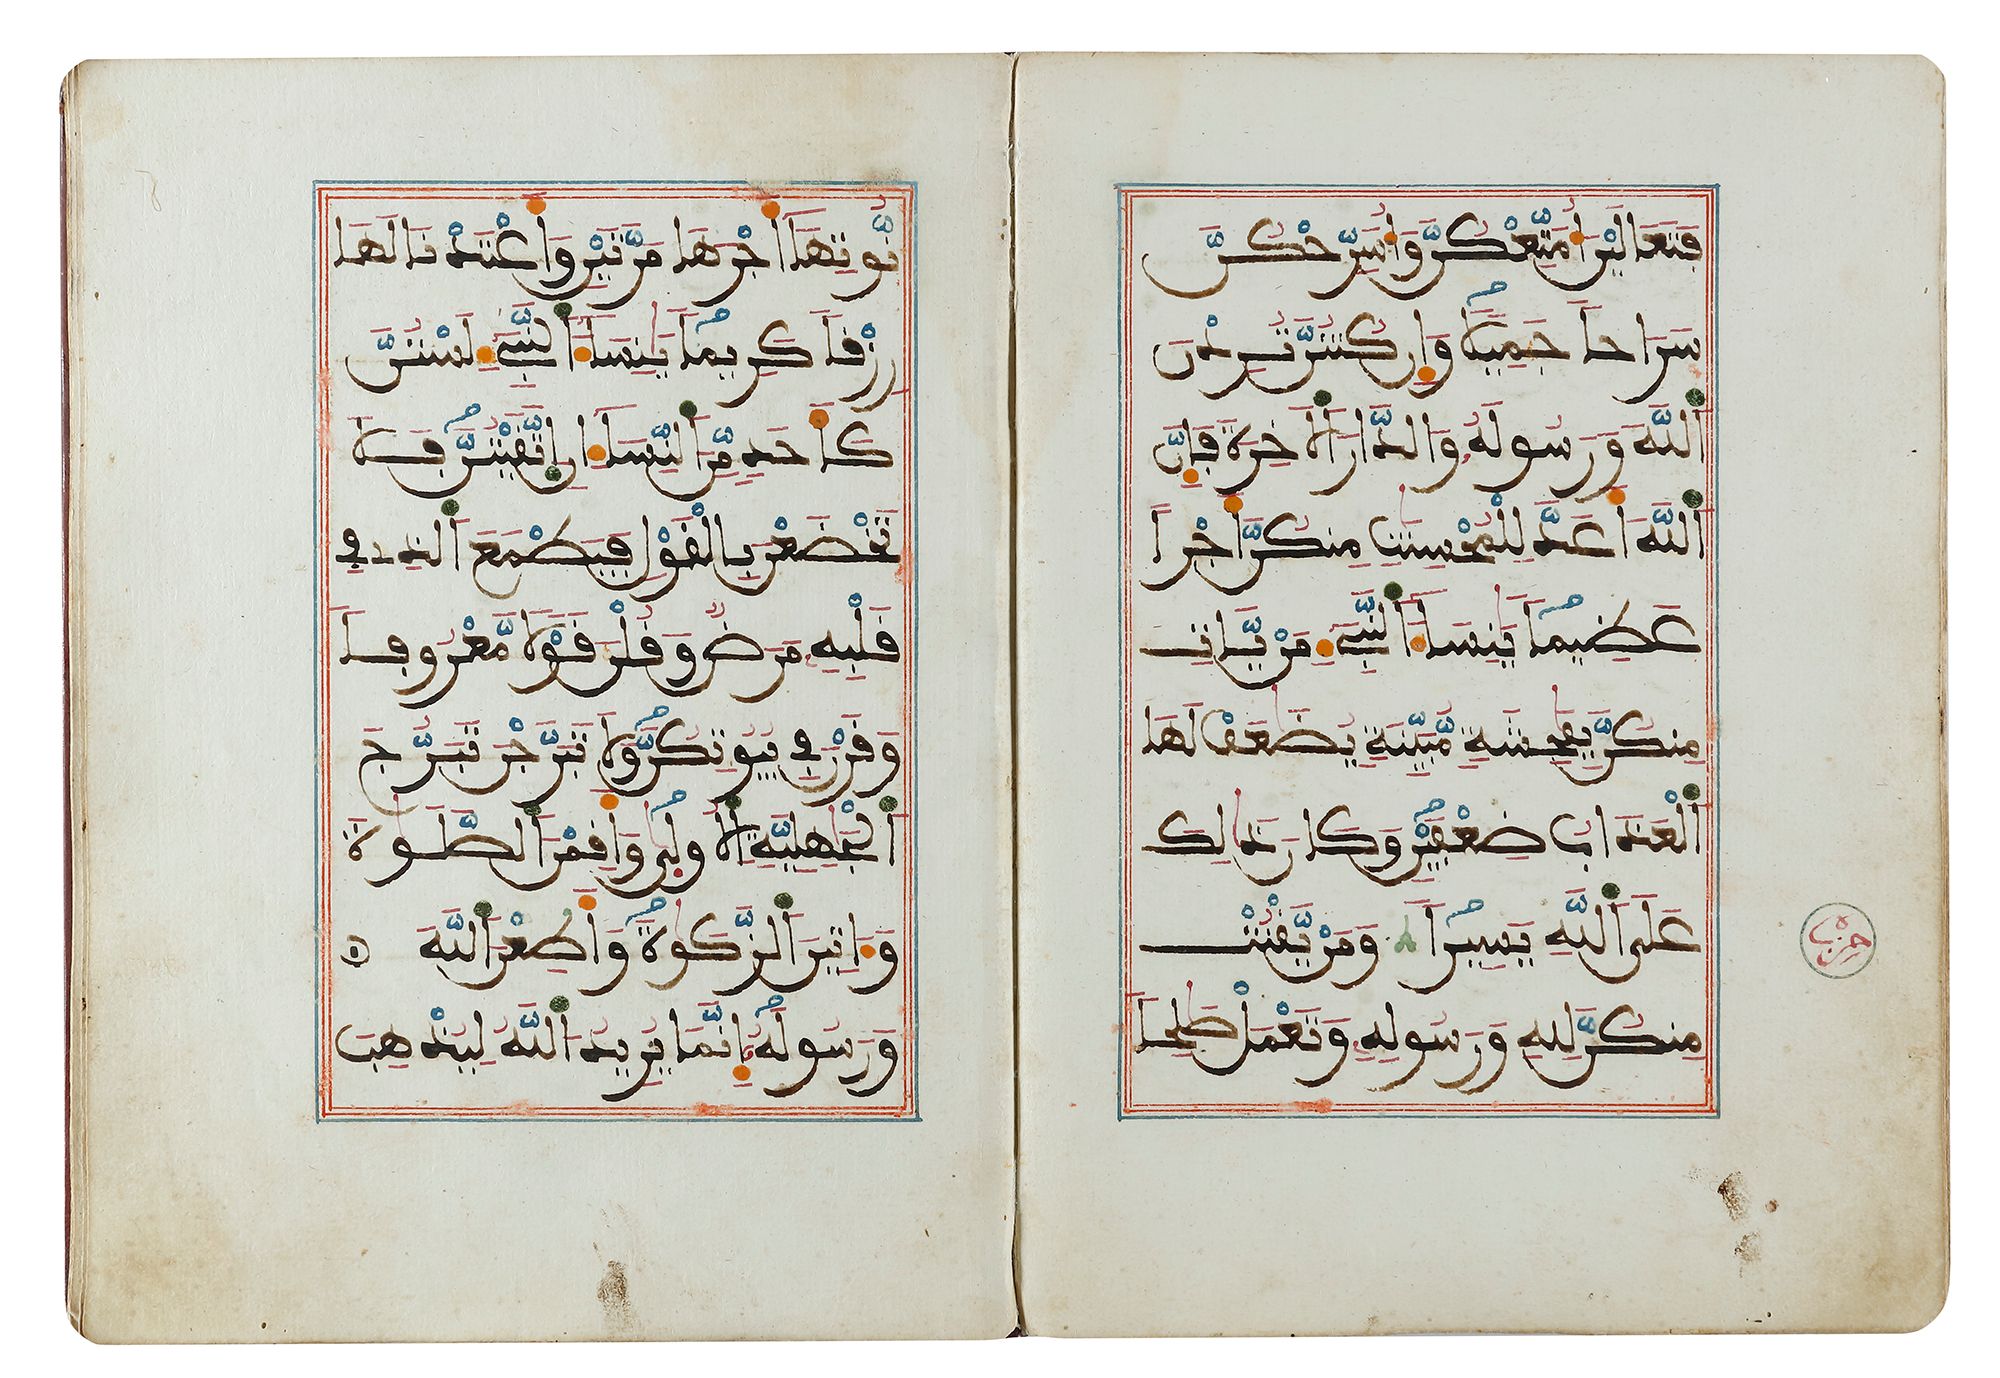 فتعالين أمتعكن وأسرحكن
سراحا جميلا وإن كنتن تردن
الله ورسوله والدار الاخرة فإن
الله أعد للمحسنت منكن أجرا
عظيما ينساء النبيء من يات
منكن بفحشة مبينة يضعف لها
العذاب ضعفين وكان ذلك
على الله يسيرا ومن يقنت
حزب
منكن لله ورسوله وتعمل صلحا
نوتها أجرها مرتين وأعتدنا لها
رزقا كريما ينساء النبيء لستن
كأحد من النساء ان اتقيتن فلا
تخضعن بالقول فيطمع الذي في
قلبه مرض وقلن قولا معروفا
وقرن في بيوتكن ولا تبرجن تبرج
الجهلية الاولى وأقمن الصلوة
وءاتين الزكوة وأطعن الله
ورسوله إنما يريد الله ليذهب